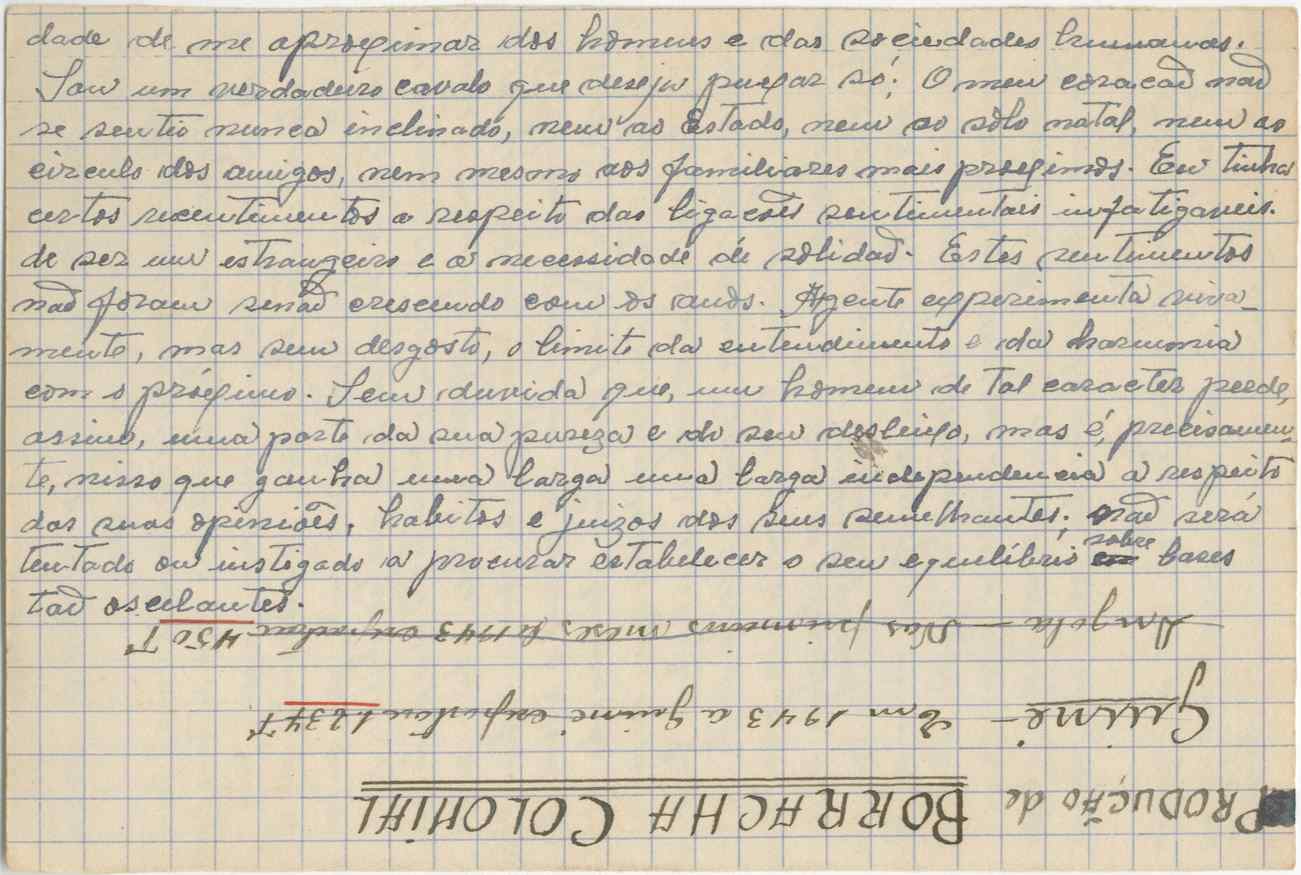 dade de me aproximar dos homens e das sociedades humanas.
Sou um verdadeiro cavalo que deseja puxar só; O meu coração não
se sentio nunca inclinado, nem ao Estado, nem ao sólo natal, nem ao
circulo dos amigos, nem mesmo aos familiares mais proximos. Eu tinha
certos recentimentos a respeito das ligacões sentimentais infatigaveis.
de ser um estrangeiro e a necessidade de solidaõ. Estes sentimentos
não foram senão crescendo com os anos. Agente experimenta viva-
mente, mas sem desgosto, o limite da entendimento e da harmonia
com o próximo. Sem duvida que, um homem de tal caracter perde,
assim, uma parte da sua pureza e do seu desleixo, mas é, precisamen-
te, nisso que ganha uma larga uma larga independencia a respeito
das suas opiniões, habitos e juizos dos seus semelhantes; não será
tentado ou instigado a procurar estabelecer o seu equilíbrio sobre bases
taõ oscilantes.
PRODUÇÃO de BORRACHA COLONIAL
Guiné - Em 1943 a Guiné exportou 1.234 T
Angola - Nos primeiros meses de 1943 450 T